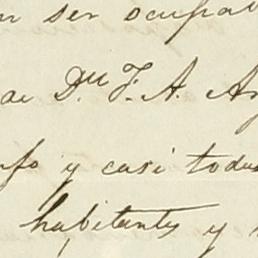 ser ocupa
de Dn F. A. A
y casi toda
habitantes y